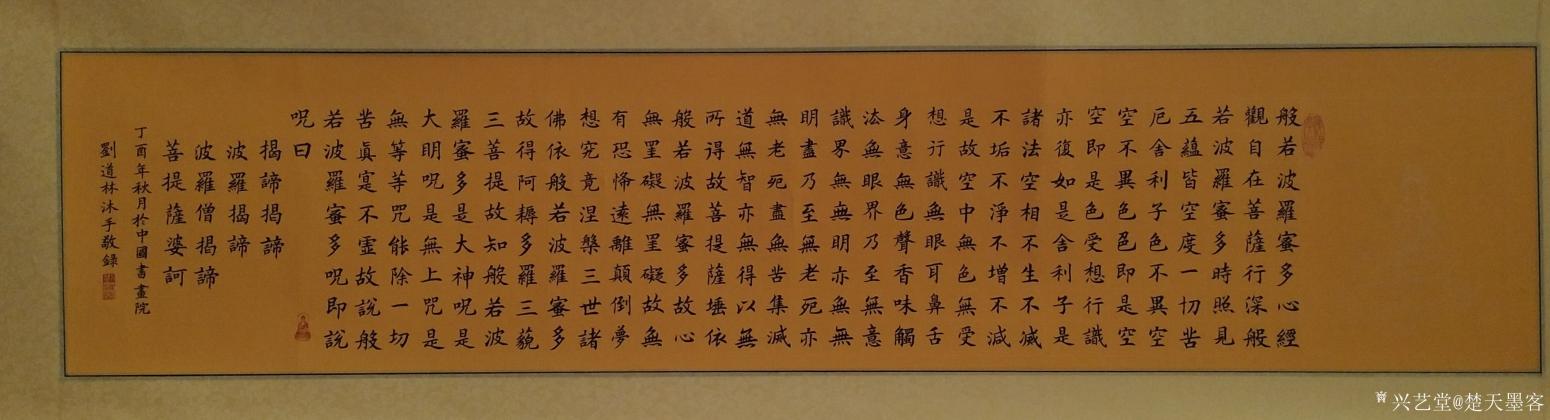 般若波羅蜜多心經
觀自在菩薩行深般
若波羅蜜多時照見
五蘊皆空度一切苦
厄舍利子色不異空
空不異色色即是空
空即是色受想行識
亦復如是舍利子是
諸法空相不生不滅
不垢不淨不增不減
是故空中無色無受
想行識無眼耳鼻舌
身意無色聲香味觸
法無眼界乃至無意
識界無無明亦無無
明盡乃至無老死亦
無老死盡無苦集滅
道無智亦無得以無
所得故菩提薩埵依
般若波羅蜜多故心
無罣礙無罣礙故無
有恐怖遠離顛倒夢
想究竟涅槃三世諸
佛依般若波羅蜜多
故得阿耨多羅三藐
三菩提故知般若波
羅蜜多是大神呪是
大明呪是無上咒是
無等等咒能除一切
苦眞寔不虛故說般
若波羅蜜多呪即說
呪曰
揭諦揭諦
波羅揭諦
波羅僧揭諦
菩提薩婆訶
丁酉年秋月於中國書畫院
劉道林沐手敬錄
兴艺堂@楚天墨客